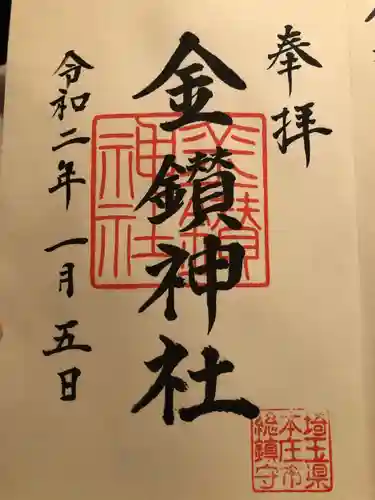 奉拝
金鑚神社
金鑚神社
埼玉県
本庄市
総鎮守
令和二年一月五日